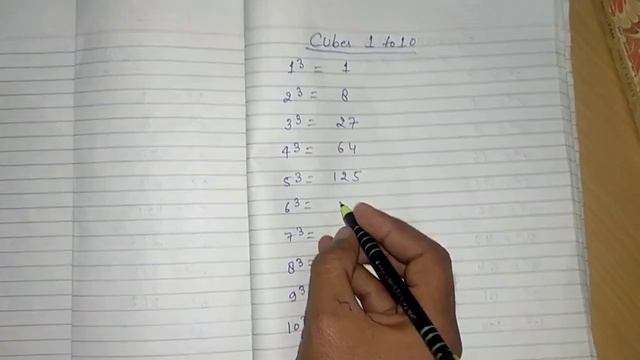 Cubes 1 to 10
1³ = 1
2³ = 8
3³ = 27
4³ = 64
5³ = 125
6³ =
7³ =
8³ =
9³
10³